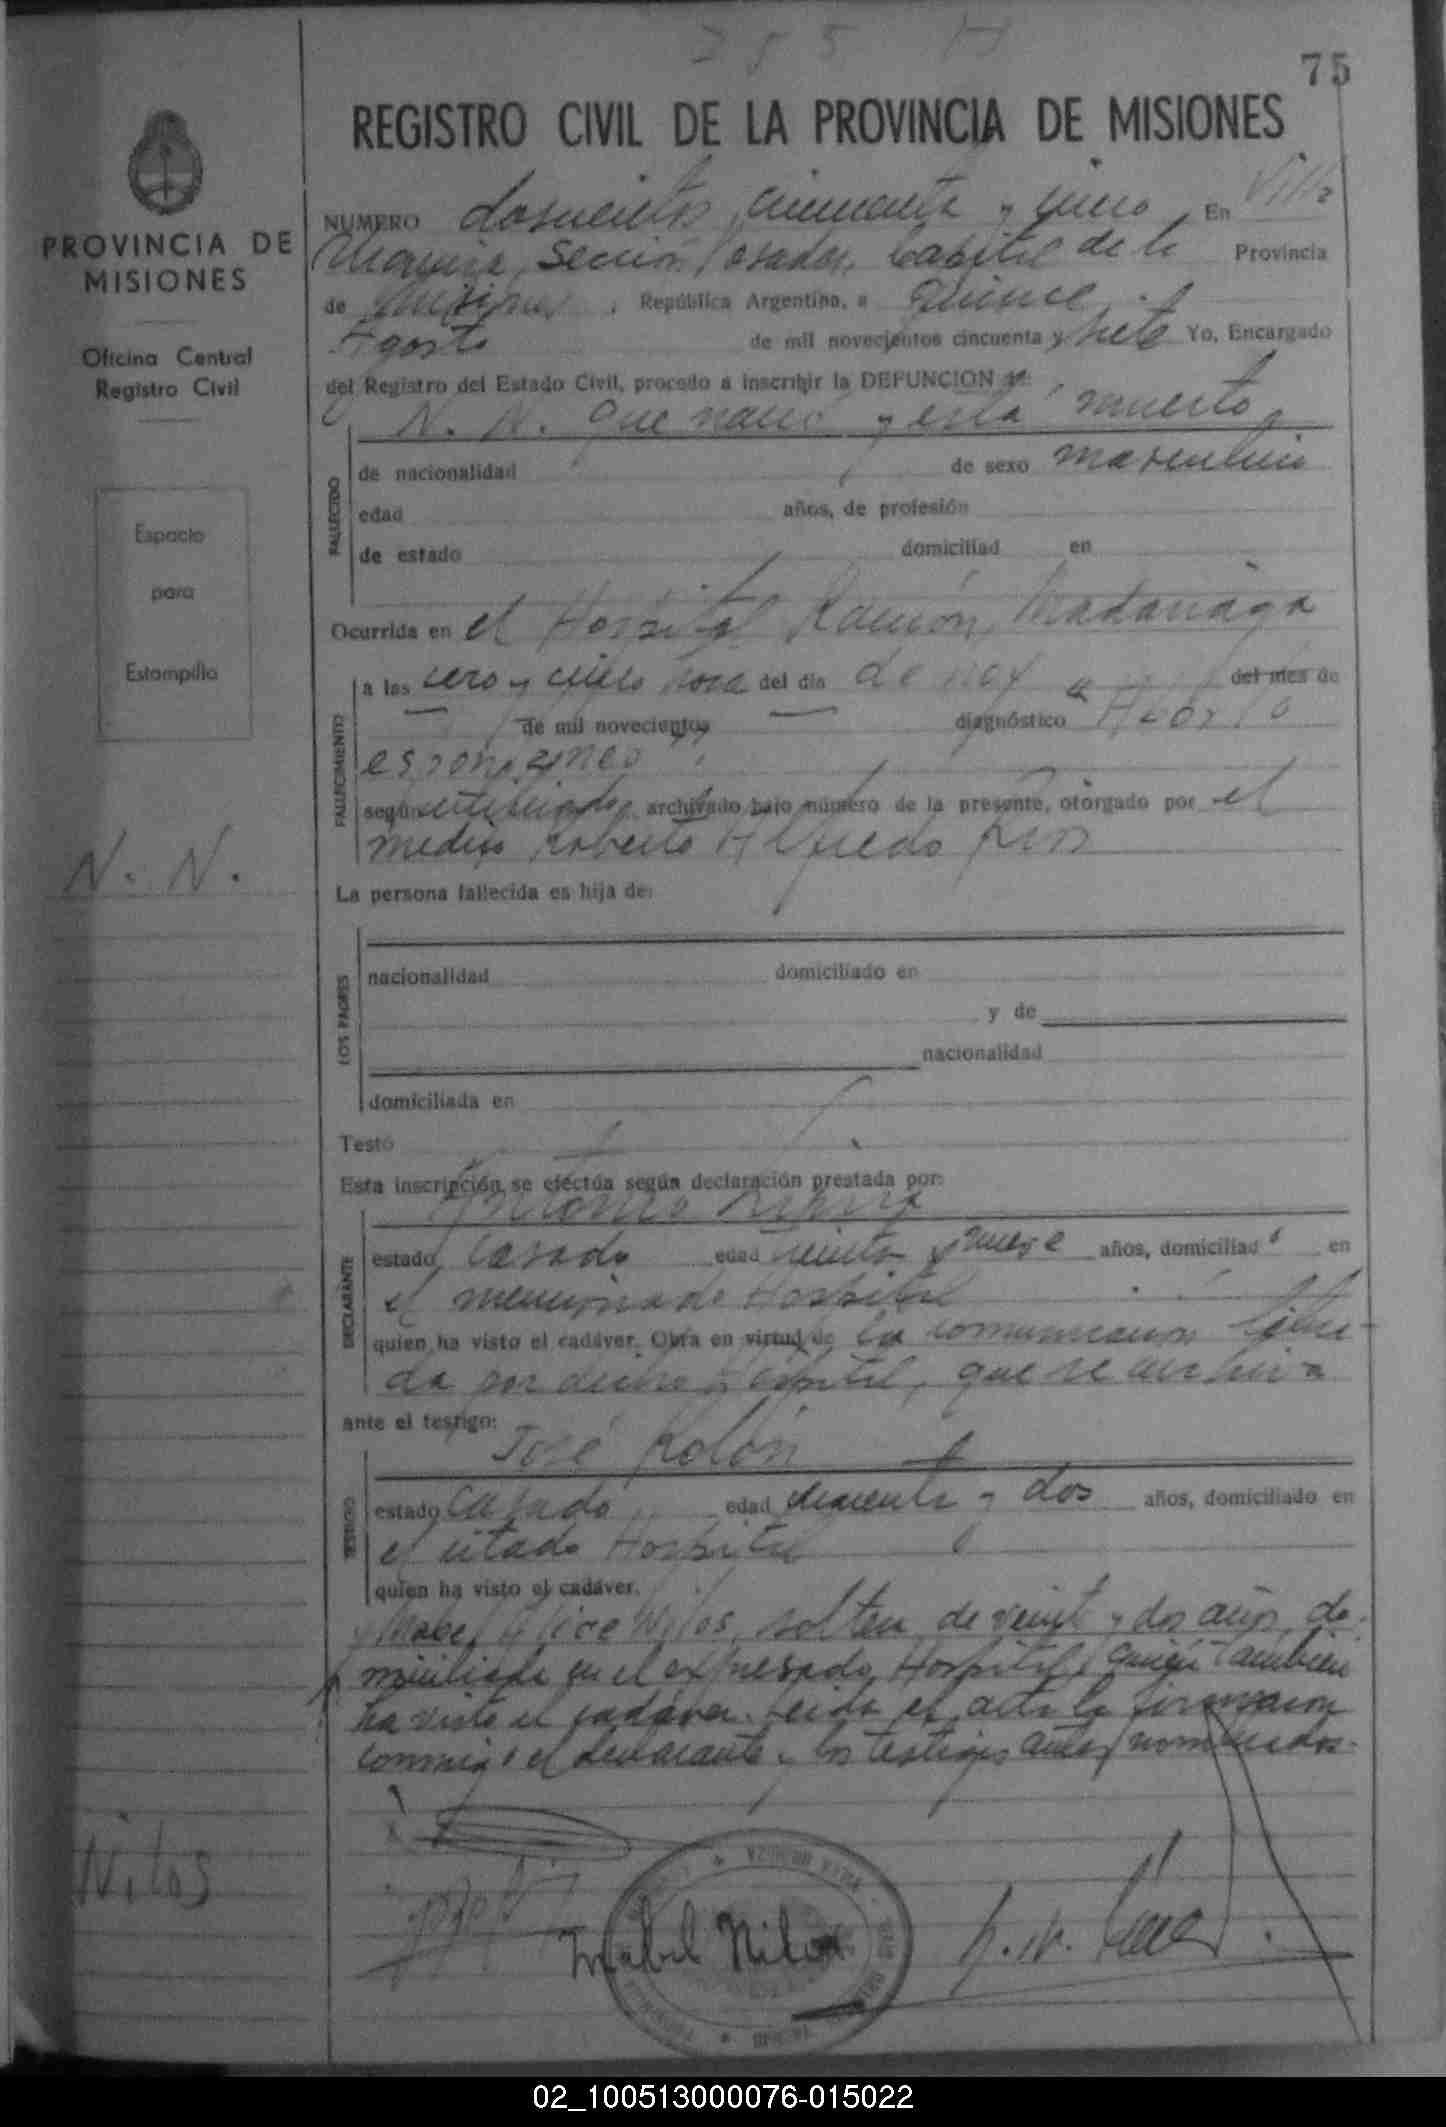 255 H
75
REGISTRO CIVIL DE LA PROVINCIA DE MISIONES
PROVINCIA DE
MISIONES
Oficina Central
Registro Civil
Espacio
para
Estampilla
N. N.
Nilos
NUMERO doscientos cincuenta y cinco En Villa
Urquiza, Sección Posadas, Capital de la Provincia
de Misiones, República Argentina, a quince
Agosto de mil novecientos cincuenta y siete Yo, Encargado
del Registro del Estado Civil, procedo a inscribir la DEFUNCION de:
N. N. que nació y está muerto
FALLECIDO
de nacionalidad de sexo masculino
edad años, de profesión
de estado domiciliad en
Ocurrida en el Hospital Ramón Madariaga
FALLECIMIENTO
a las cero y cinco hora del día de hoy del mes de
de mil novecientos diagnóstico Aborto
espontáneo
según certificado, archivado bajo número de la presente, otorgado por el
médico Roberto Alfredo
La persona fallecida es hija de:
LOS PADRES
nacionalidad domiciliado en
y de
nacionalidad
domiciliada en
Testó
Esta inscripción se efectúa según declaración prestada por:
Antonio
DECLARANTE
estado casado edad treinta y nueve años, domiciliado en
el mencionado Hospital
quien ha visto el cadáver. Obra en virtud de la comunicación
da por dicho Hospital, que se archiva
ante el testigo:
José Rolón
TESTIGO
estado casado edad cuarenta y dos años, domiciliado en
el citado Hospital
quien ha visto el cadáver.
y Mabel Nilos, soltera de veinte y dos años, do-
miciliada en el expresado Hospital, quien también
ha visto el cadáver. Leída el acta la firmaron
conmigo el declarante y los testigos antes nombrados.
Mabel Nilos
02_100513000076-015022